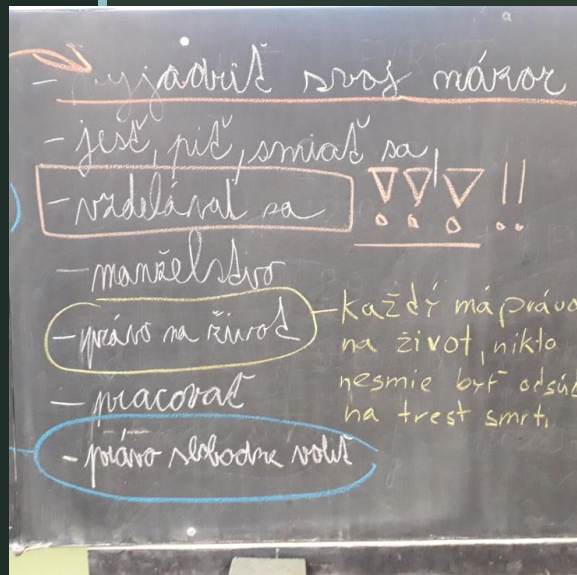 - vyjadriť svoj názor
- jesť, piť, smiať sa,
- vzdelávať sa !!! !!
- manželstvo
- právo na život
- každý má právo
na život, nikto
nesmie byť odsúd
na trest smrti
- pracovať
- právo slobodne voliť